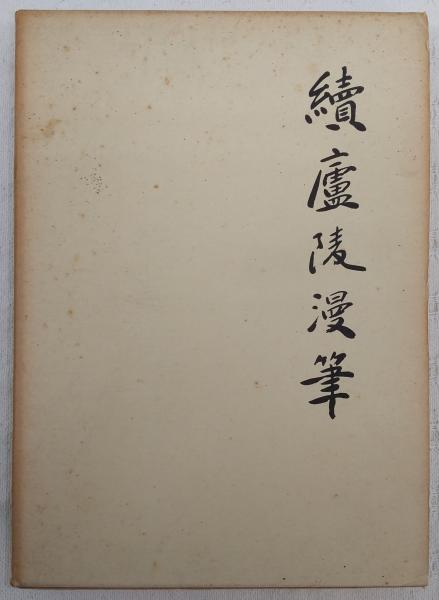 續廬陵漫筆